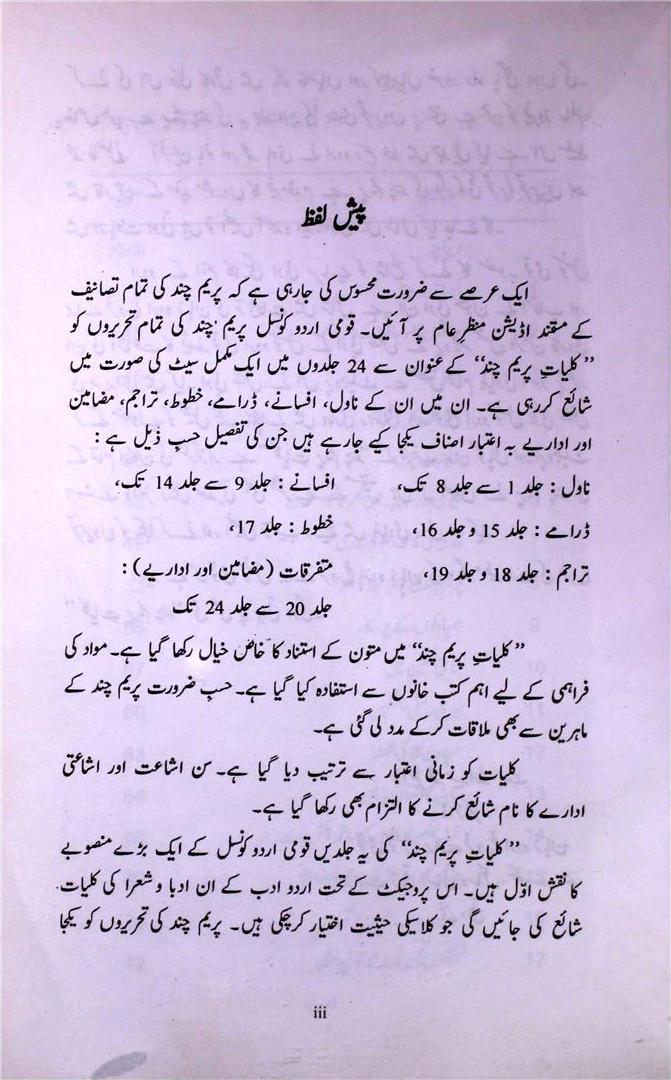 پیش لفظ
ایک عرصے سے ضرورت محسوس کی جارہی ہے کہ پریم چند کی تمام تصانیف
کے مستند اڈیشن منظرِ عام پر آئیں۔ قومی اردو کونسل پریم چند کی تمام تحریروں کو
”کلیاتِ پریم چند“ کے عنوان سے 24 جلدوں میں ایک مکمل سیٹ کی صورت میں
شائع کررہی ہے۔ ان میں ان کے ناول، افسانے، ڈرامے، خطوط، تراجم، مضامین
اور اداریے بہ اعتبار اصناف یکجا کیے جارہے ہیں جن کی تفصیل حسبِ ذیل ہے :
ناول : جلد 1 سے جلد 8 تک، افسانے : جلد 9 سے جلد 14 تک،
ڈرامے : جلد 15 و جلد 16، خطوط : جلد 17،
تراجم : جلد 18 و جلد 19، متفرقات (مضامین اور اداریے) :
جلد 20 سے جلد 24 تک
”کلیات پریم چند“ میں متون کے استناد کا خاص خیال رکھا گیا ہے۔ مواد کی
فراہمی کے لیے اہم کتب خانوں سے استفادہ کیا گیا ہے۔ حسبِ ضرورت پریم چند کے
ماہرین سے بھی ملاقات کرکے مدد لی گئی ہے۔
کلیات کو زمانی اعتبار سے ترتیب دیا گیا ہے۔ سن اشاعت اور اشاعتی
ادارے کا نام شائع کرنے کا التزام بھی رکھا گیا ہے۔
”کلیاتِ پریم چند“ کی یہ جلدیں قومی اردو کونسل کے ایک بڑے منصوبے
کا نقش اوّل ہیں۔ اس پروجیکٹ کے تحت اردو ادب کے ان ادبا و شعرا کی کلیات
شائع کی جائیں گی جو کلاسیکی حیثیت اختیار کرچکی ہیں۔ پریم چند کی تحریروں کو یکجا
iii